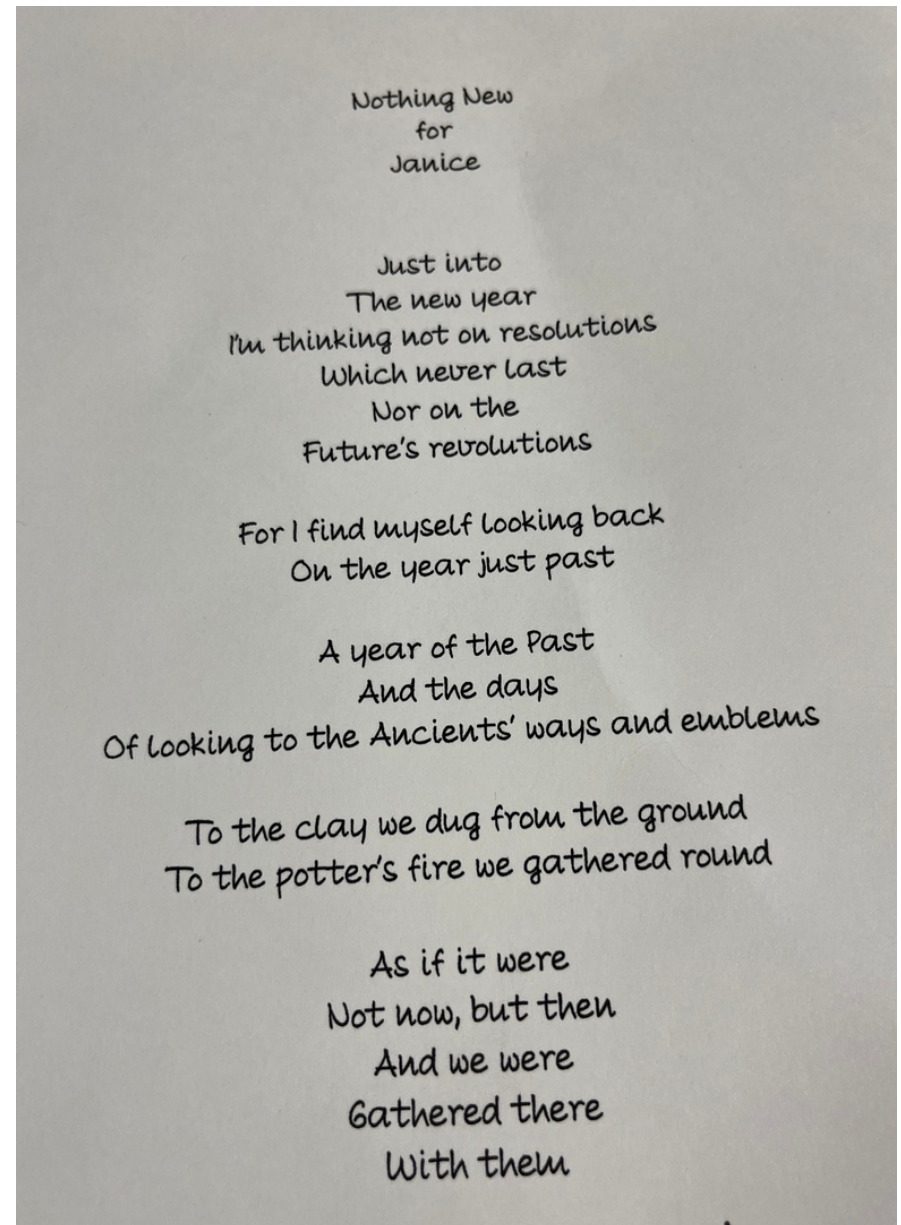 Nothing New
for
Janice
Just into
The new year
I'm thinking not on resolutions
Which never last
Nor on the
Future's revolutions
For I find myself looking back
On the year just past
A year of the Past
And the days
Of looking to the Ancients' ways and emblems
To the clay we dug from the ground
To the potter's fire we gathered round
As if it were
Not now, but then
And we were
Gathered there
With them